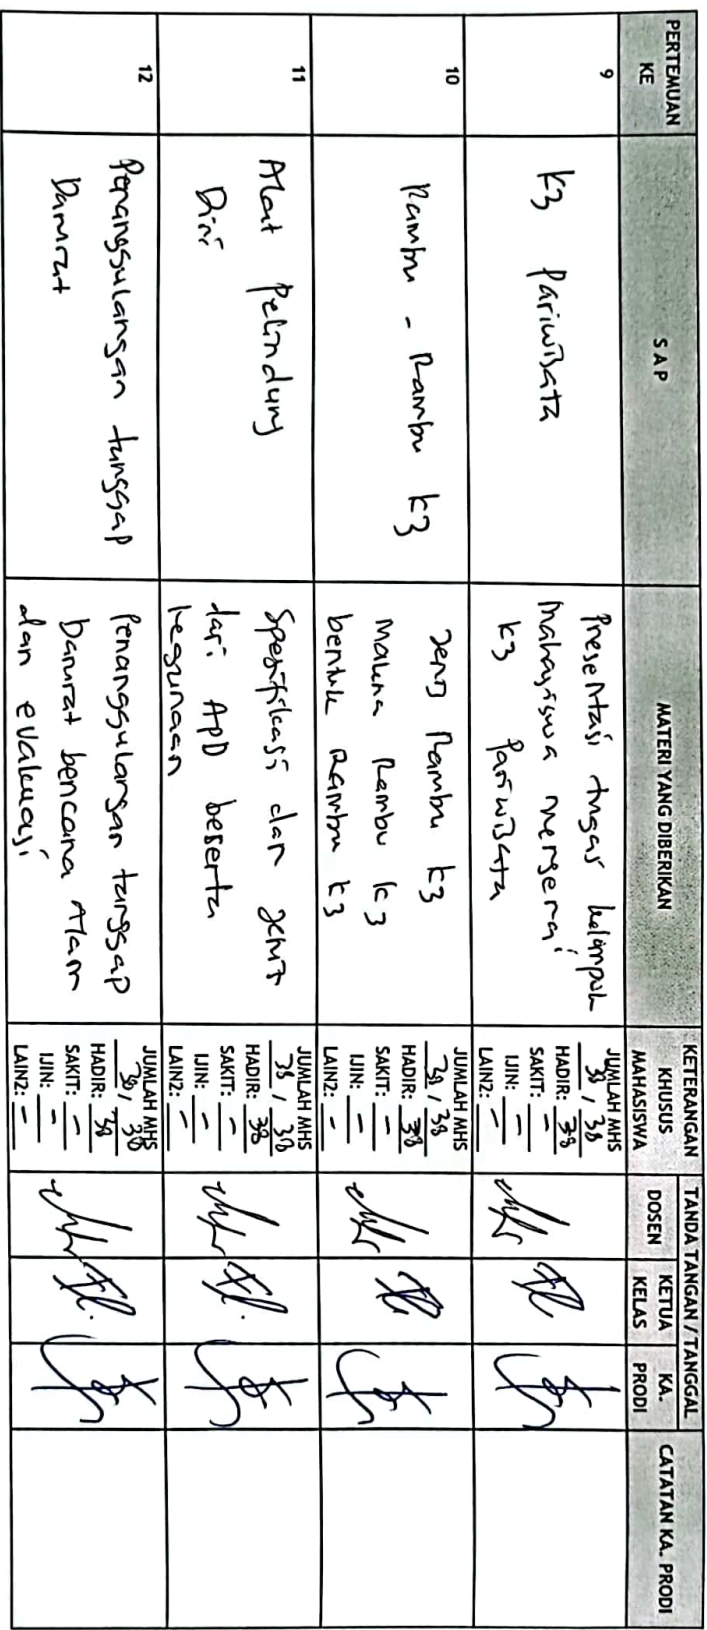 PERTEMUAN KE
SAP
MATERI YANG DIBERIKAN
KETERANGAN KHUSUS MAHASISWA
TANDA TANGAN / TANGGAL
DOSEN
KETUA KELAS
KA. PRODI
CATATAN KA. PRODI
9
K3 Pariwisata
Presentasi tugas kelompok
mahasiswa mengenai
K3 Pariwisata
JUMLAH MHS
38 / 38
HADIR: 38
SAKIT: -
IJIN: -
LAIN2: -
10
Rambu - Rambu K3
Jenis Rambu K3
Makna Rambu K3
bentuk Rambu K3
JUMLAH MHS
38 / 38
HADIR: 38
SAKIT: -
IJIN: -
LAIN2: -
11
Alat Pelindung
Diri
Spesifikasi dan jenis
dari APD beserta
kegunaan
JUMLAH MHS
38 / 38
HADIR: 38
SAKIT: -
IJIN: -
LAIN2: -
12
Penanggulangan tanggap
Darurat
Penanggulangan tanggap
Darurat bencana Alam
dan evakuasi
JUMLAH MHS
38 / 38
HADIR: 38
SAKIT: -
IJIN: -
LAIN2: -